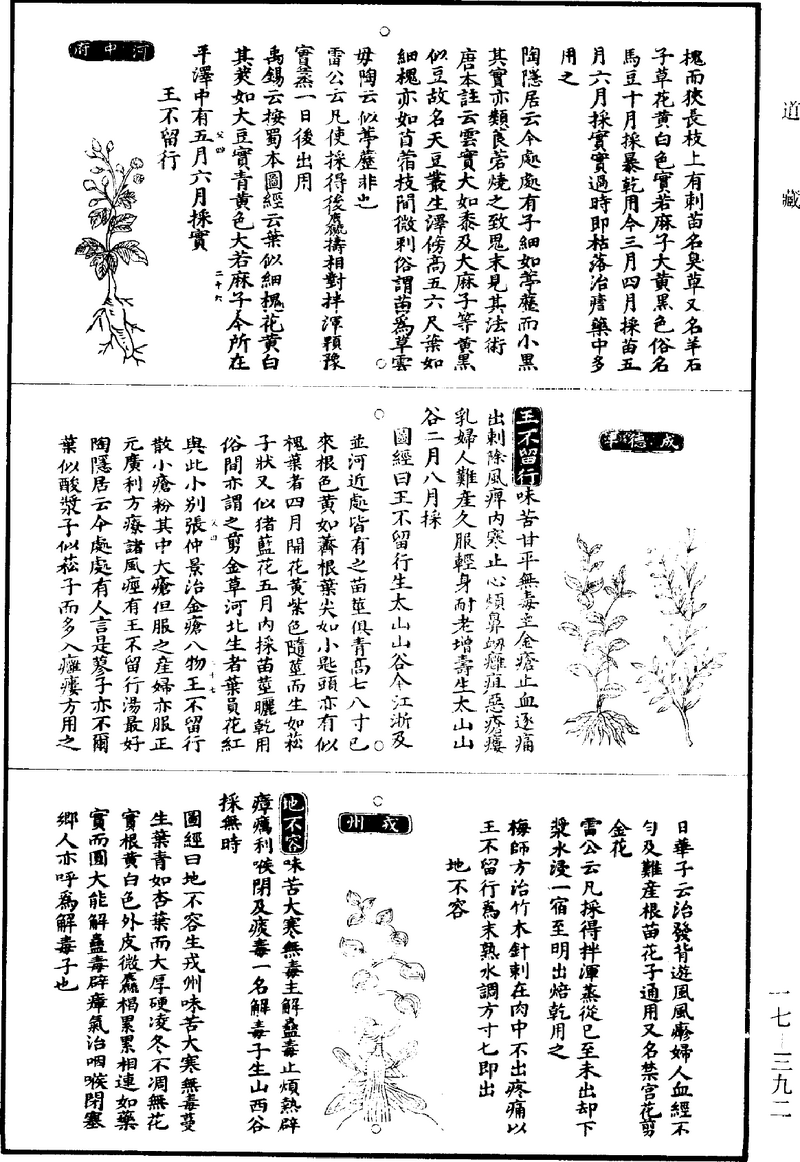 道藏
槐而狹長枝上有刺苗名臭草又名羊石
子草花黃白色實若麻子大黃黑色俗名
馬豆十月採暴乾用今三月四月採苗五
月六月採實實過時即枯落治瘧藥中多
用之
陶隱居云今處處有子細如葶藶而小黑
其實亦類莨菪燒之致鬼未見其法術
唐本註云雲實大如黍及大麻子等黃黑
似豆故名天豆叢生澤傍高五六尺葉如
細槐亦如苜蓿枝間微刺俗謂苗為草雲
毋陶云似葶藶非也
雷公云凡使採得後麁擣相對拌渾顆豫
實蒸一日後出用
禹錫云按蜀本圖經云葉似細槐花黃白
其莢如大豆實青黃色大若麻子今所在
平澤中有五月六月採實
父四
二十六
王不留行
河中府
成德軍
王不留行味苦甘平無毒主金瘡止血逐痛
出刺除風痺內寒止心煩鼻衂癰疽惡瘡瘻
乳婦人難產久服輕身耐老增壽生太山山
谷二月八月採
圖經曰王不留行生太山山谷今江浙及
並河近處皆有之苗莖俱青高七八寸已
來根色黃如薺根葉尖如小匙頭亦有似
槐葉者四月開花黃紫色隨莖而生如菘
子狀又似猪藍花五月內採苗莖曬乾用
俗間亦謂之剪金草河北生者葉員花紅
與此小別張仲景治金瘡八物王不留行
父四
二十七
散小瘡粉其中大瘡但服之產婦亦服正
元廣利方療諸風痙有王不留行湯最好
陶隱居云今處處有人言是蓼子亦不爾
葉似酸漿子似菘子而多入癰瘻方用之
日華子云治發背遊風風疹婦人血經不
勻及難產根苗花子通用又名禁宮花剪
金花
雷公云凡採得拌渾蒸從巳至未出却下
漿水浸一宿至明出焙乾用之
梅師方治竹木針刺在肉中不出疼痛以
王不留行為末熟水調方寸七即出
地不容
戎州
地不容味苦大寒無毒主解蠱毒止煩熱辟
瘴癘利喉閉及痰毒一名解毒子生山西谷
採無時
圖經曰地不容生戎州味苦大寒無毒蔓
生葉青如杏葉而大厚硬凌冬不凋無花
實根黃白色外皮微麁褐累累相連如藥
實而圓大能解蠱毒辟瘴氣治咽喉閉塞
鄉人亦呼為解毒子也
一七－三九二